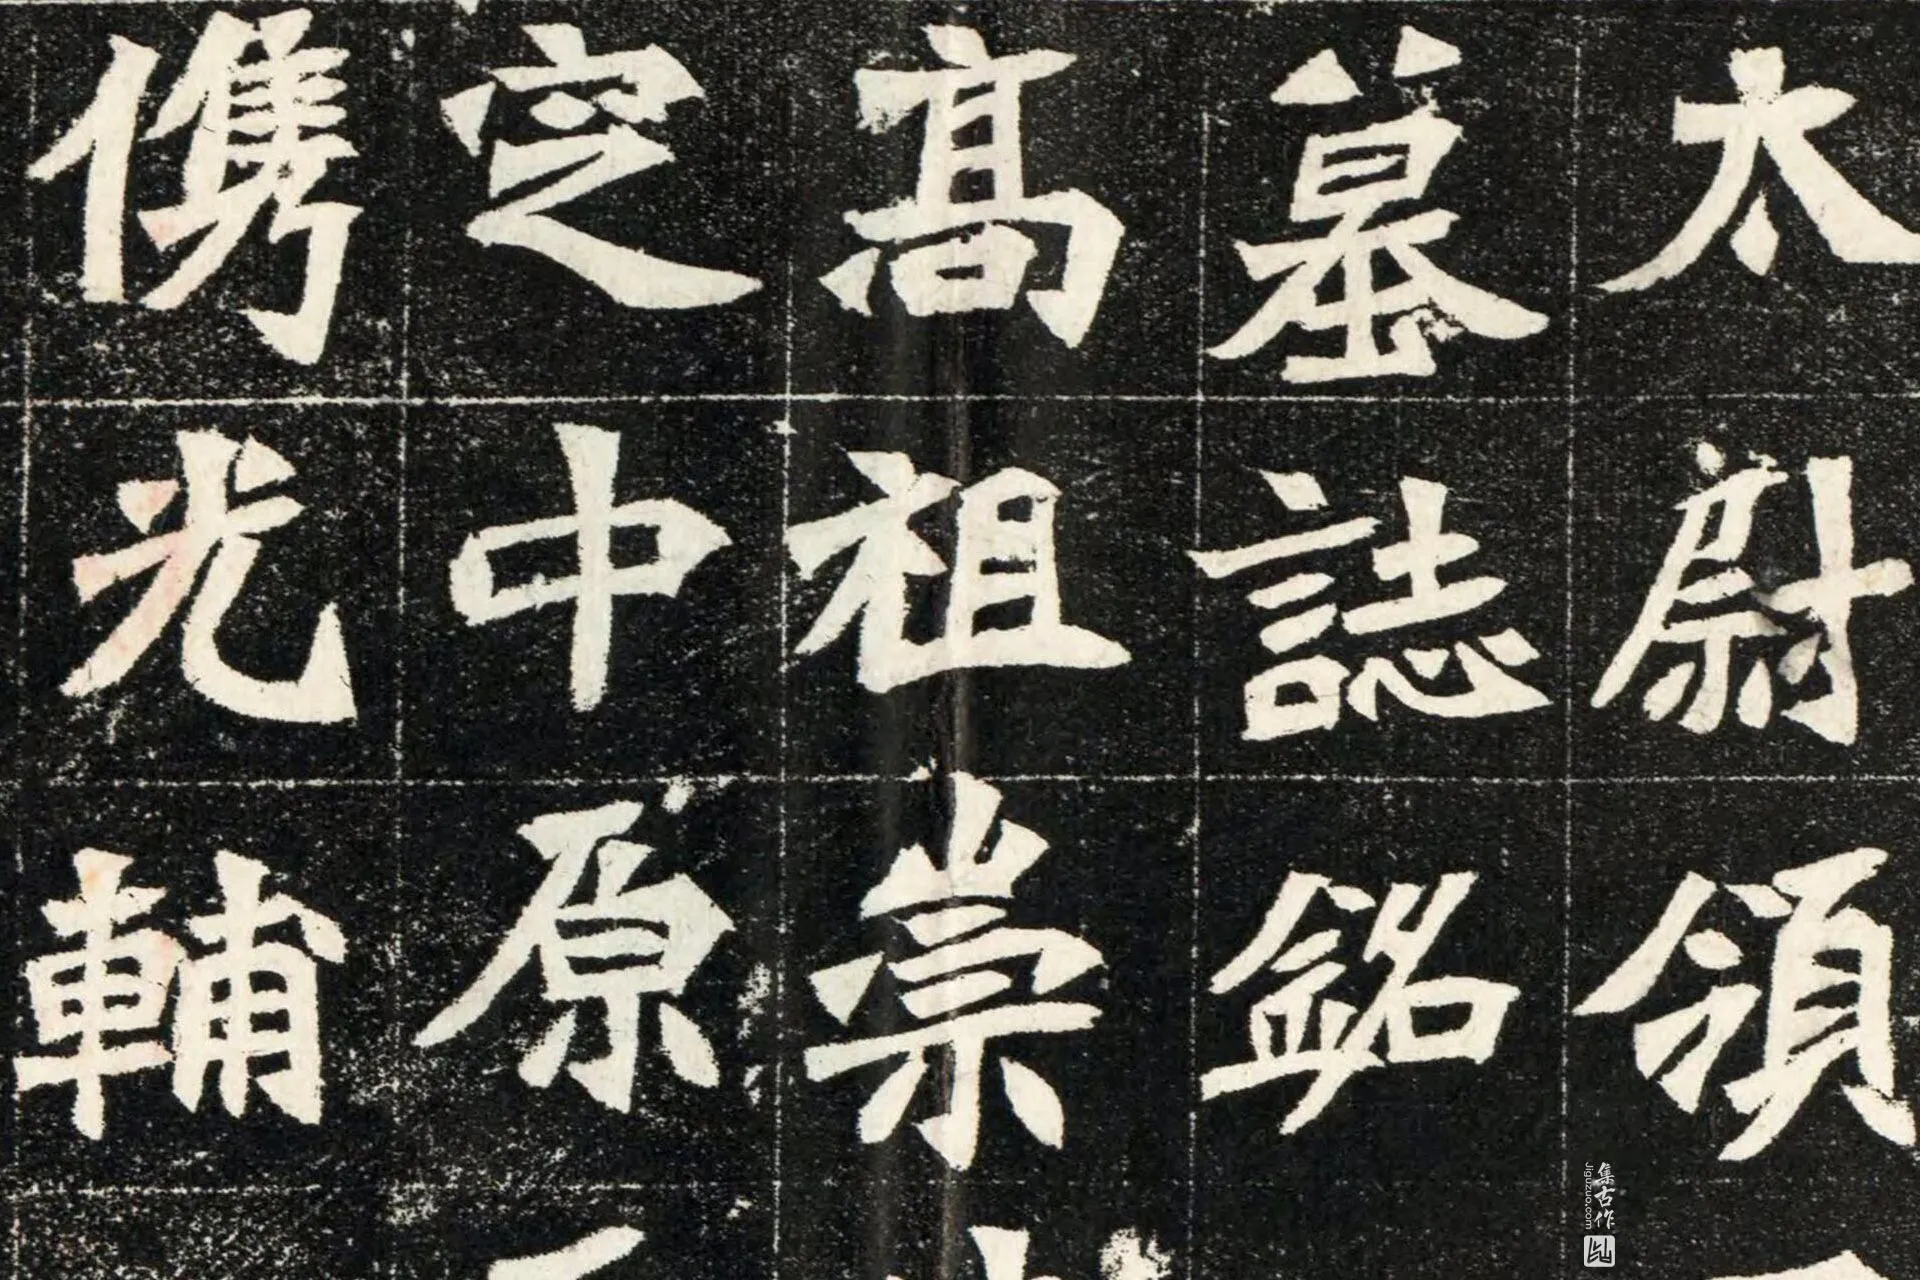 太尉領
墓誌銘
高祖崇
定中原
儁光輔
集古作
Jiguzuo.com